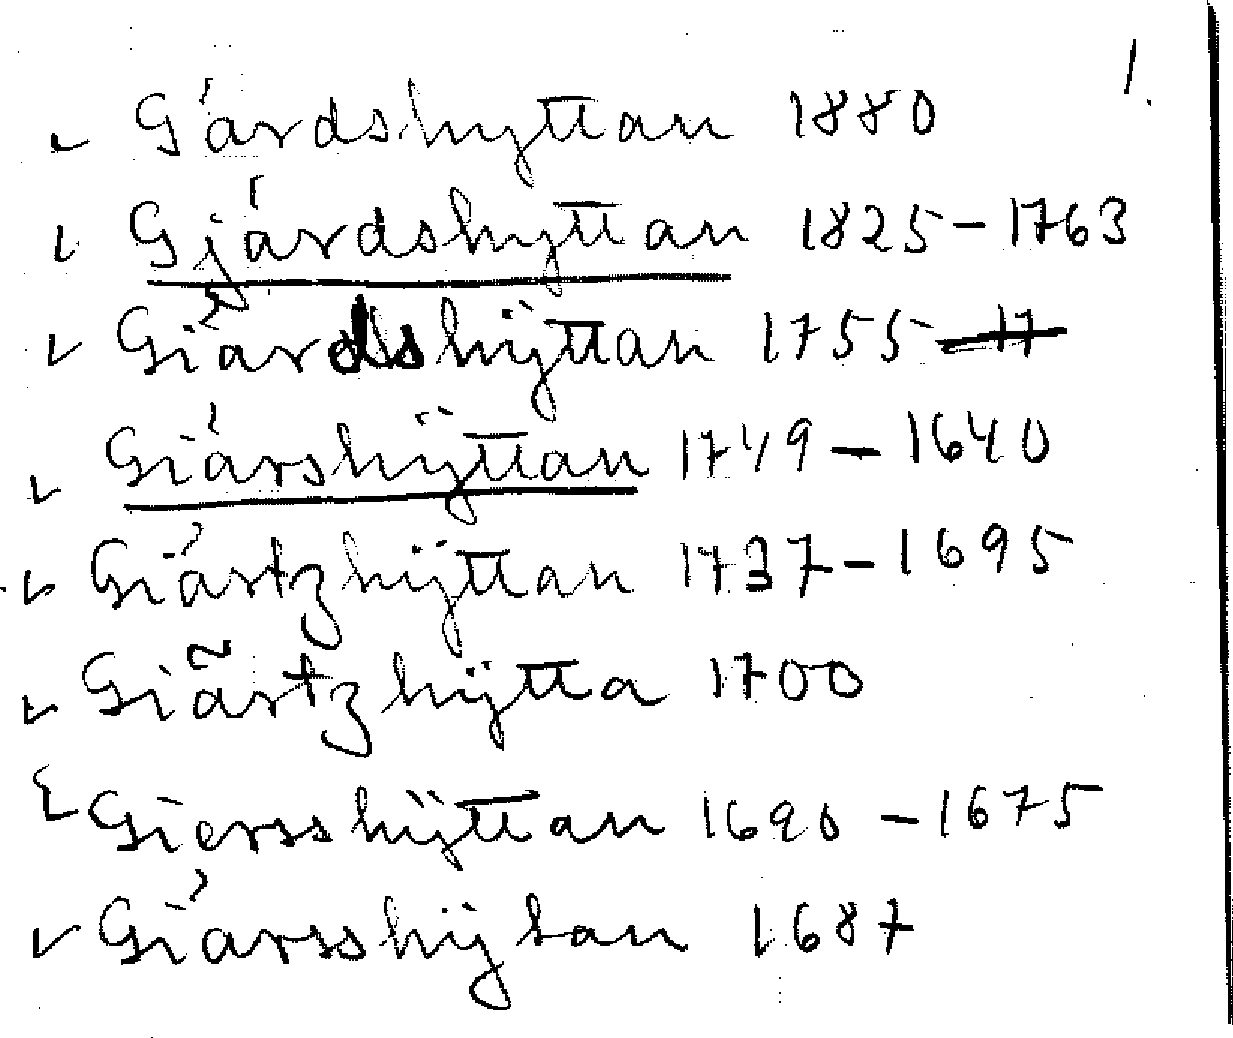 1.
✓ Gårdshyttan 1880
✓ Gjårdshyttan 1825-1763
✓ Giårdshÿttan 1755-17
✓ Giårshÿttan 1749-1640
✓ Giårtzhÿttan 1737-1695
✓ Giårtzhÿtta 1700
✓ Giersshÿttan 1690-1675
✓ Giårsshÿtan 1687